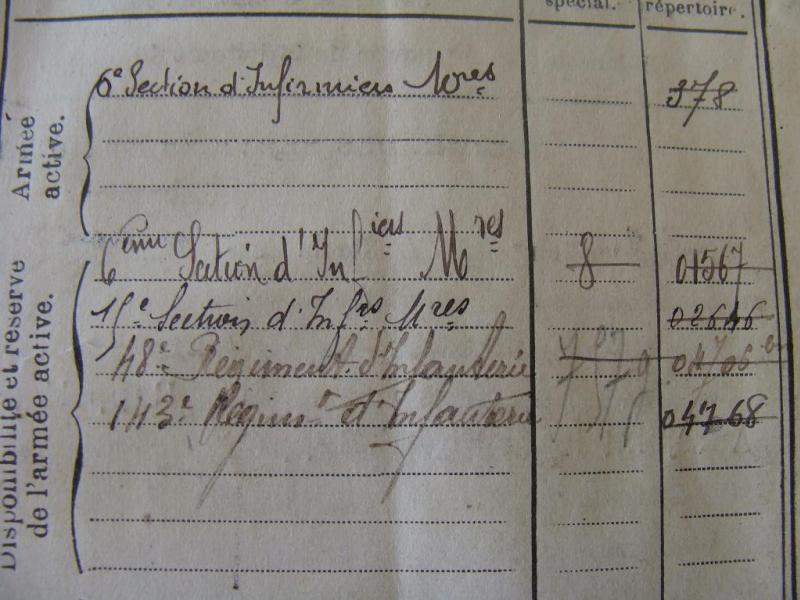 spécial. répertoire.
Armée active.
6e Section d'Infirmiers Mres 378
Disponibilité et réserve de l'armée active.
6ème Section d'Infiers Mres 8 01567
15e Section d'Infrs Mres 02646
148e Régiment d'Infanterie
143e Régimt d'Infanterie 04768